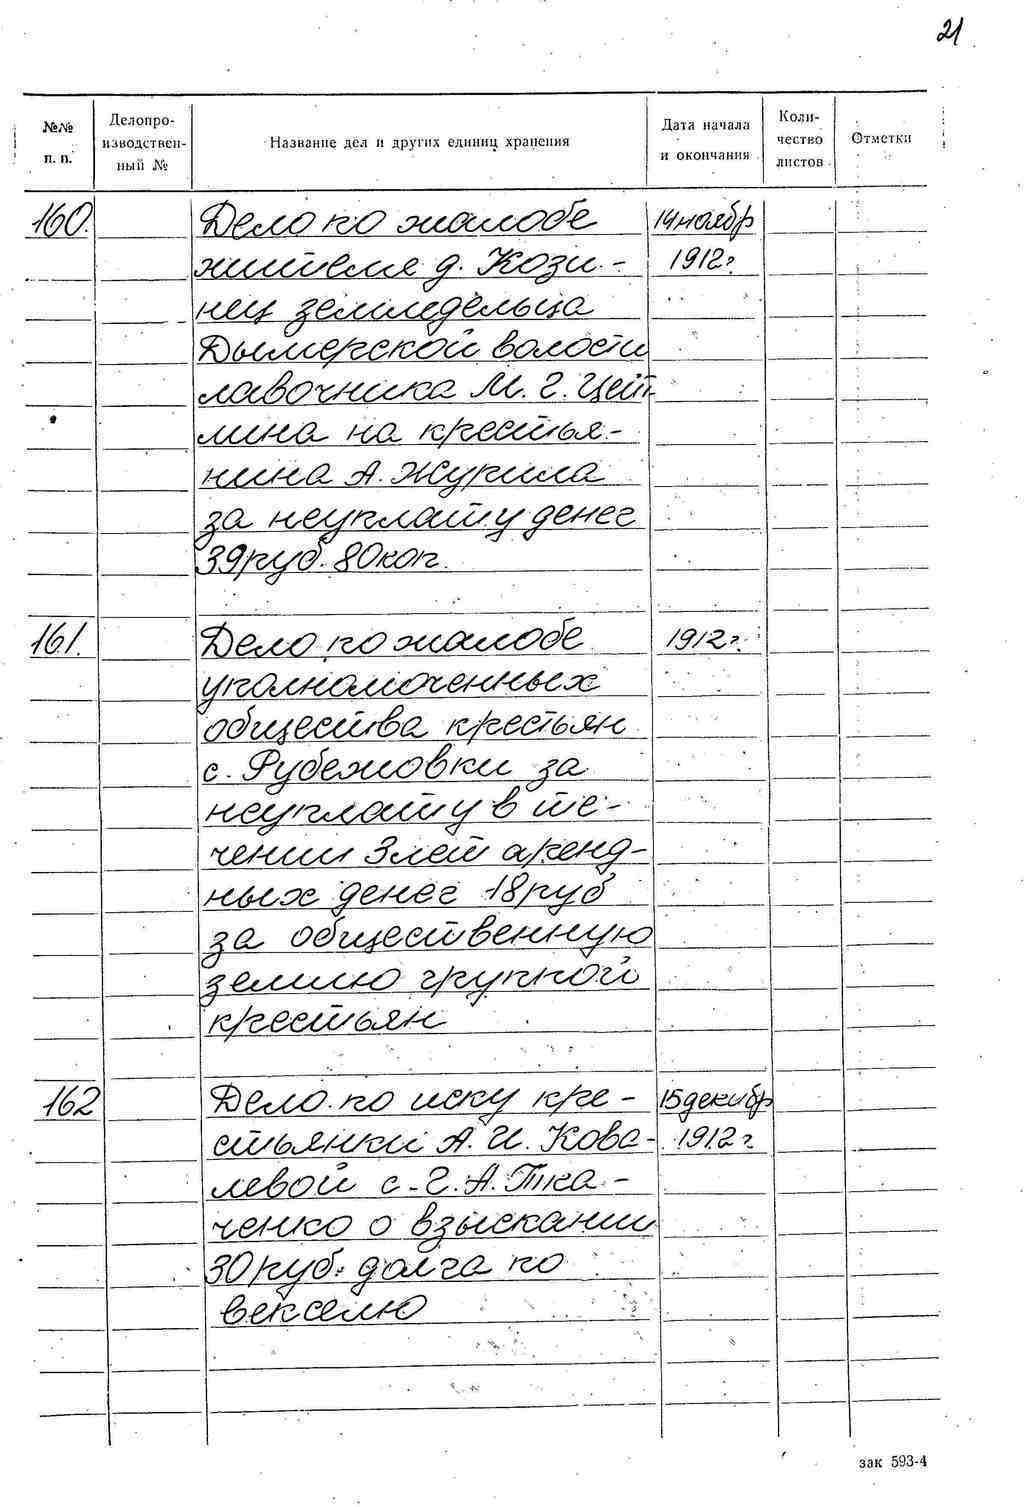 21
№№ п. п.
Делопро-
изводствен-
ный №
Название дел и других единиц хранения
Дата начала
и окончания
Коли-
чество
листов
Отметки
160. Дело по жалобе 14 ноябр
жителя д. Кози- 1912г
нец земледельца
Дымерской волости
лавочника М. Г. Цейт
лина на крестья-
нина А. Журила
за неуплату денег
39 руб. 80 коп.
161. Дело по жалобе 1912г.
уполномоченных
общества крестьян
с. Рубежовки за
неуплату в те-
чении 3 лет аренд-
ных денег 18 руб
за общественную
землю группой
крестьян
162 Дело по иску кре- 15 декабр
стьянки А. И. Кова- 1912г
левой с Г. А. Тка-
ченко о взыскании
30 руб. долга по
векселю
зак 593-4